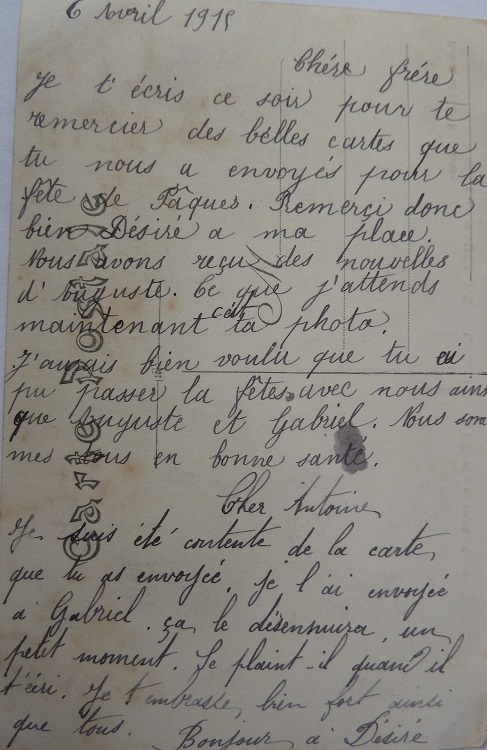 6 Avril 1915
Chère frère
Je t'écris ce soir pour te
remercier des belles cartes que
tu nous a envoyés pour la
fête de Pâques. Remerci donc
bien Désiré a ma place.
Nous avons reçu des nouvelles
d'Auguste. Ce que j'attends
maintenant cest ta photo.
J'aurais bien voulu que tu ai
pu passer la fêtes avec nous ainsi
que Auguste et Gabriel. Nous som
mes tous en bonne santé.
Cher Antoine
Je suis été contente de la carte
que tu as envoyée, je l'ai envoyée
a Gabriel, ça le désennuira, un
petit moment. Se plaint-il quand il
t'écri. Je t'embrasse, bien fort ainsi
que tous. Bonjour a Désiré
Carte Postale